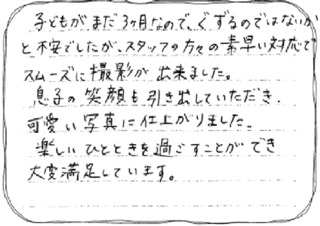 子どもがまだ3ヶ月なので、ぐずるのではないか
と不安でしたが、スタッフの方々の素早い対応で
スムーズに撮影が出来ました。
息子の笑顔も引き出していただき、
可愛い写真に仕上がりました。
楽しいひとときを過ごすことができ
大変満足しています。